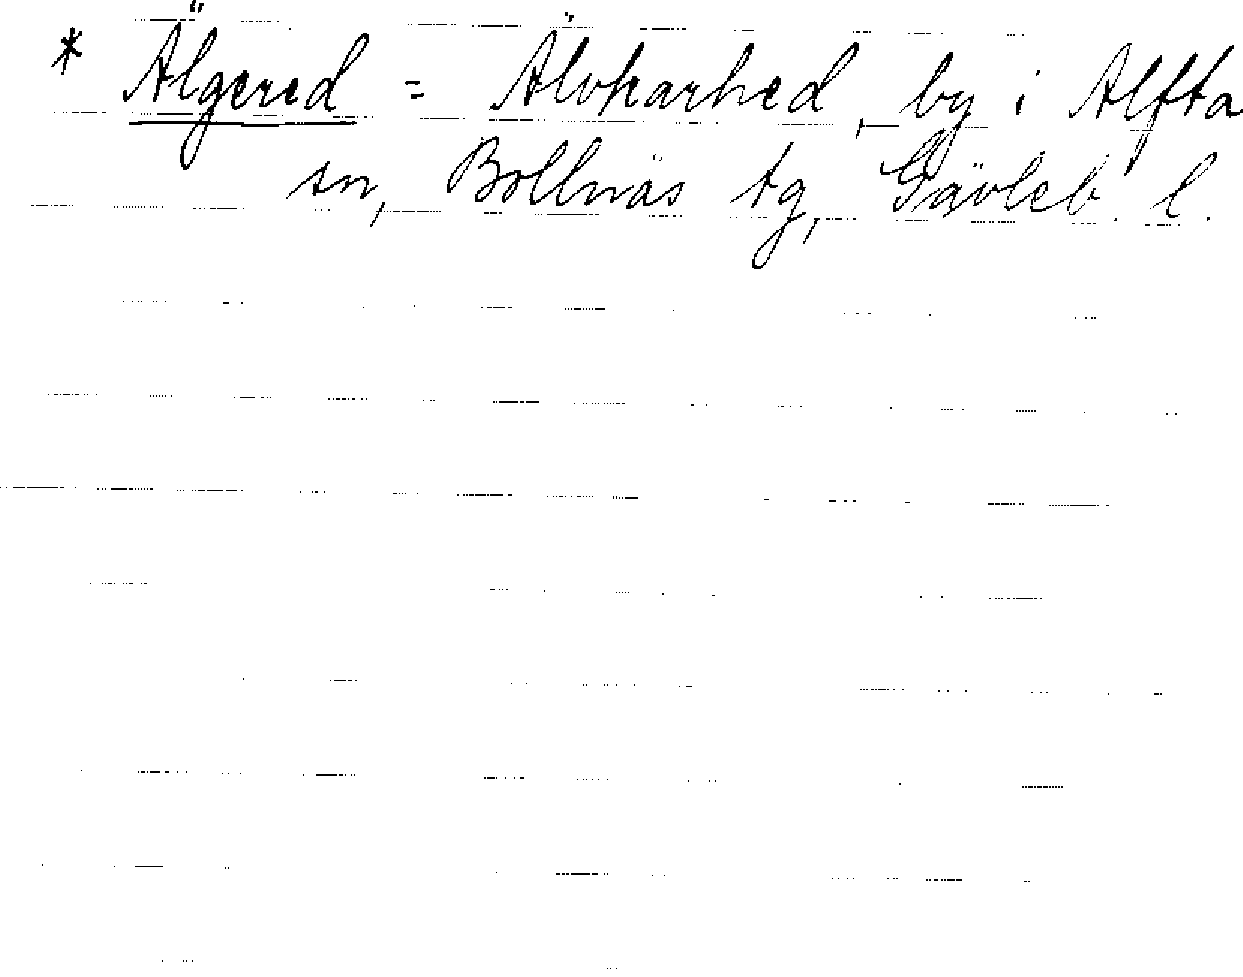 * Älgered = Älvkarhed, by i Alfta
sn, Bollnäs tg, Gävleb. l.